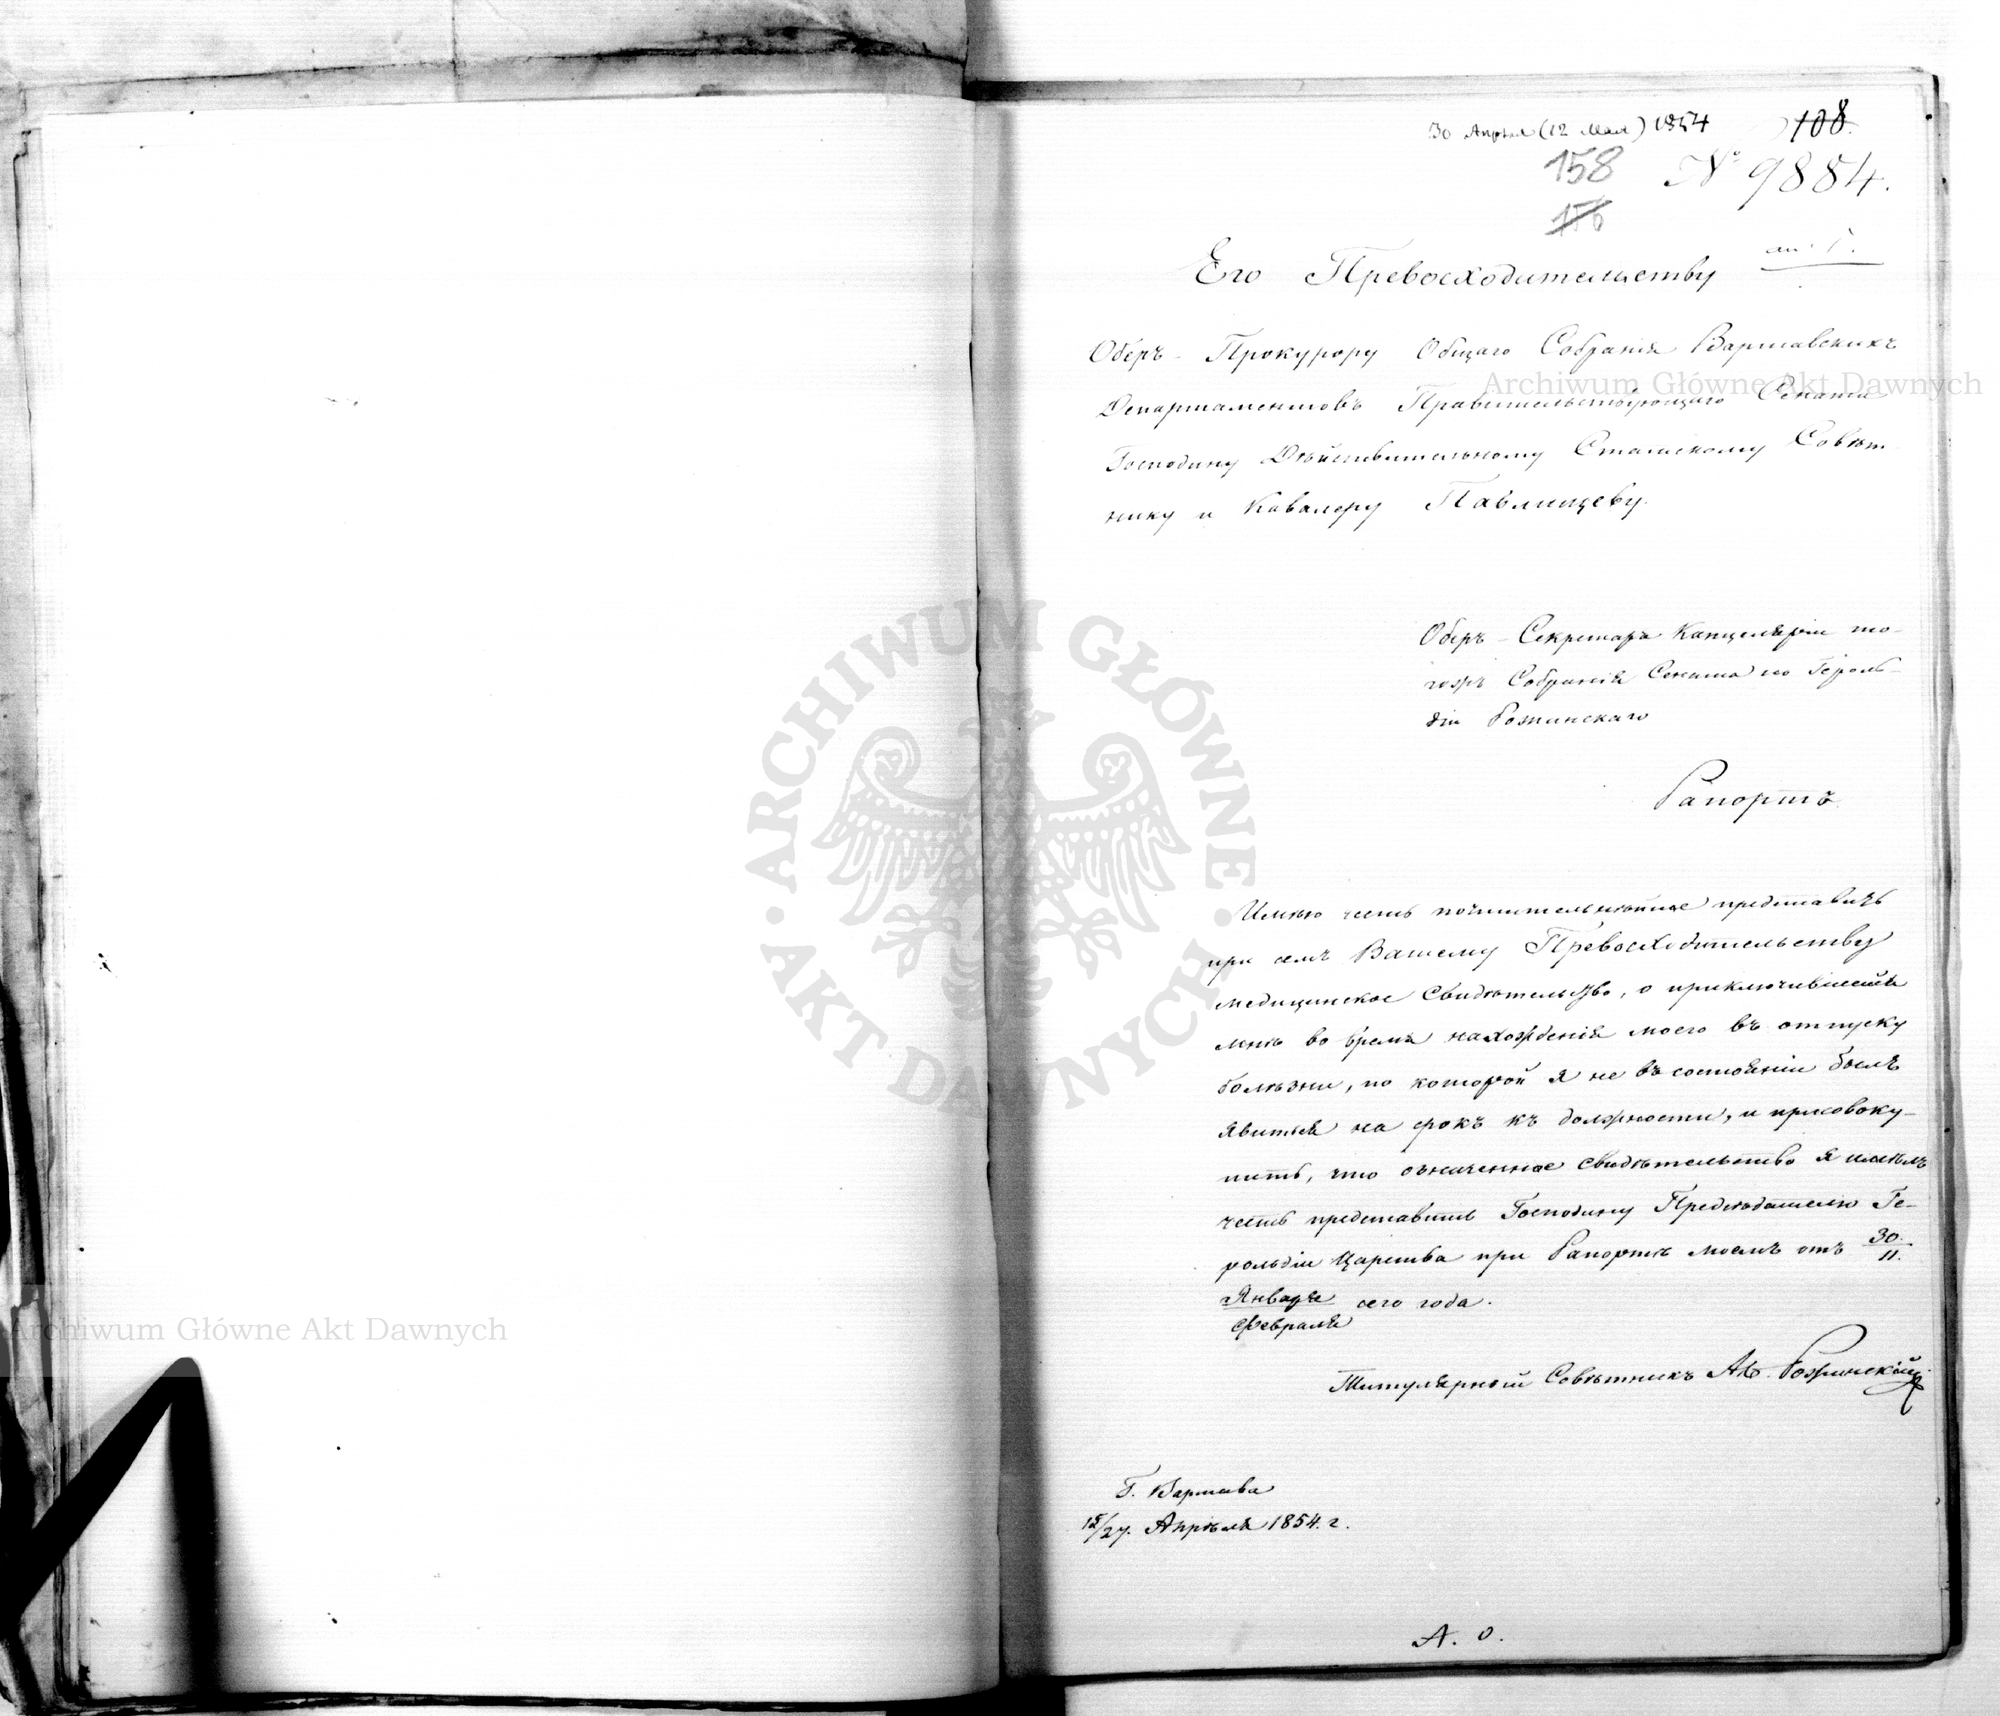 30 Апреля (12 Мая) 1854 108.
158 № 9884.
156
Его Превосходительству
Оберъ-Прокурору Общаго Собранія Варшавскихъ
Департаментовъ Правительствующаго Сената
Господину Дѣйствительному Статскому Совѣт-
нику и Кавалеру Павлищеву.
Оберъ-Секретаря Канцеляріи то-
гожъ Собранія Сената по Героль-
діи Рожинскаго
Рапортъ.
Имѣю честь почтительнѣйше представить
при семъ Вашему Превосходительству
медицинское Свидѣтельство, о приключившейся
мнѣ во время нахожденія моего въ отпуску
болѣзни, по которой я не въ состояніи былъ
явиться на срокъ къ должности, и присовоку-
пить, что означенное свидѣтельство я имѣлъ
честь представить Господину Предсѣдателю Ге-
рольдіи Царства при Рапортѣ моемъ отъ 30/11.
Января/Февраля сего года.
Титулярный Совѣтникъ Ав. Рожинскій
Г. Варшава
15/27. Апрѣля 1854. г.
А. О.
ARCHIWUM GŁÓWNE AKT DAWNYCH
Archiwum Główne Akt Dawnych
Archiwum Główne Akt Dawnych